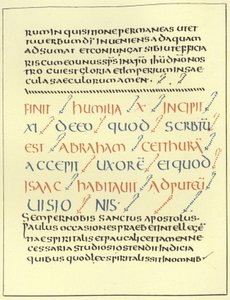 RUM INQUISITIONE PERMANEAS UTET
TU ERBUM DĪ INUENIENS AD AQUAM
ADSUMAT ET CONIUNGAT SIBI UT EFFICIA
RIS CUM EO UNUS SPS̄ IN XP̄O IHŪ DN̄O NOS
TRO CUI EST GLORIA ET IMPERIUM IN SAE
CULA SAECULORUM AMEN.
FINIT HUMILIA X. INCIPIT
XI DE EO QUOD SCRIBTŪ
EST ABRAHAM CETTHURĀ
ACCEPIT UXORĒ ET QUOD
ISAAC HABITAUIT AD PUTEŪ
UISIONIS.
SEMPER NOBIS SANCTUS APOSTOLUS.
PAULUS OCCASIONES PRAEBET INTELLEGĒ
TIAE SPIRITALIS ET PAUCA LICET TAMEN NE
CESSARIA STUDIOSIS OSTENDIT INDICIA
QUIBUS QUOD LEX SPIRITALIS SIT IN OMNIB